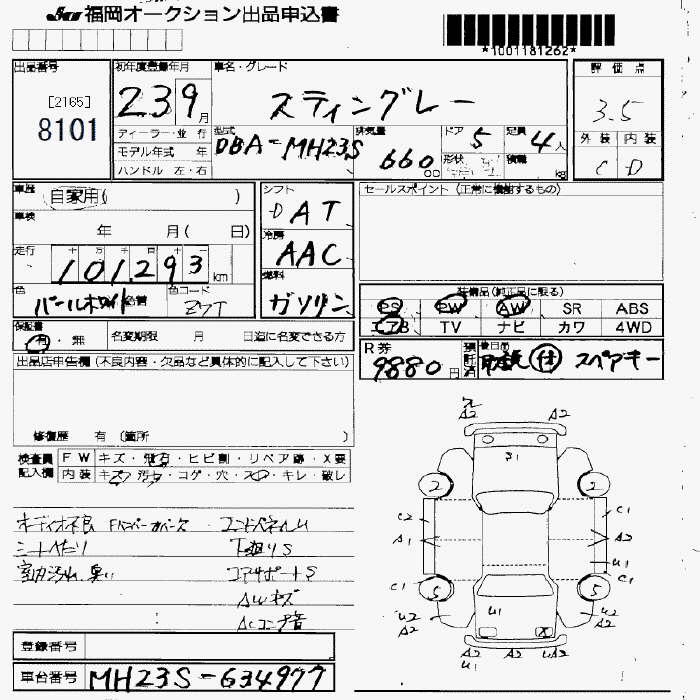 JU 福岡オークション出品申込書
*1001181262*
出品番号
[2165]
8101
初年度登録年月
23 9月
ディーラー・並 行
モデル年式 年
ハンドル 左・右
車名・グレード
スティングレー
型式
DBA-MH23S
排気量
660
ドア 5
定員 4人
形状
積載 kg
評 価 点
3.5
外 装 内 装
C D
車歴
自家用( )
車検
年 月( 日)
走行
101,293 km
色
パールホワイト
色コード
ZVT
シフト
D AT
冷房
AAC
燃料
ガソリン
セールスポイント (正常に機能するもの)
装備品(純正品に限る)
PS PW AW SR ABS
エアB TV ナビ カワ 4WD
保証書
有・無
名変期限 月 日迄に名変できる方
R券
9880円
取説 付 スペアキー
出品店申告欄 (不良内容・欠品など具体的に記入して下さい)
修復歴 有 (箇所 )
検査員 記入欄
FW キズ・飛石・ヒビ割・リペア跡・X要
内装 キズ・汚れ・コゲ・穴・スレ・キレ・破レ
オーディオ不良 Fバンパーカバーズ コンドパネイム
シートヘタリ 下廻りS
室内汚れ、臭い コアサポートS
AWキズ
ACコンプ音
A2 A2
2 2
C2 A1
C1 A2 U1
C1 C1
5 5
U2 A2
U2 A2
U1 X
A2 U1 A2 A2
登録番号
車台番号
MH23S-634977